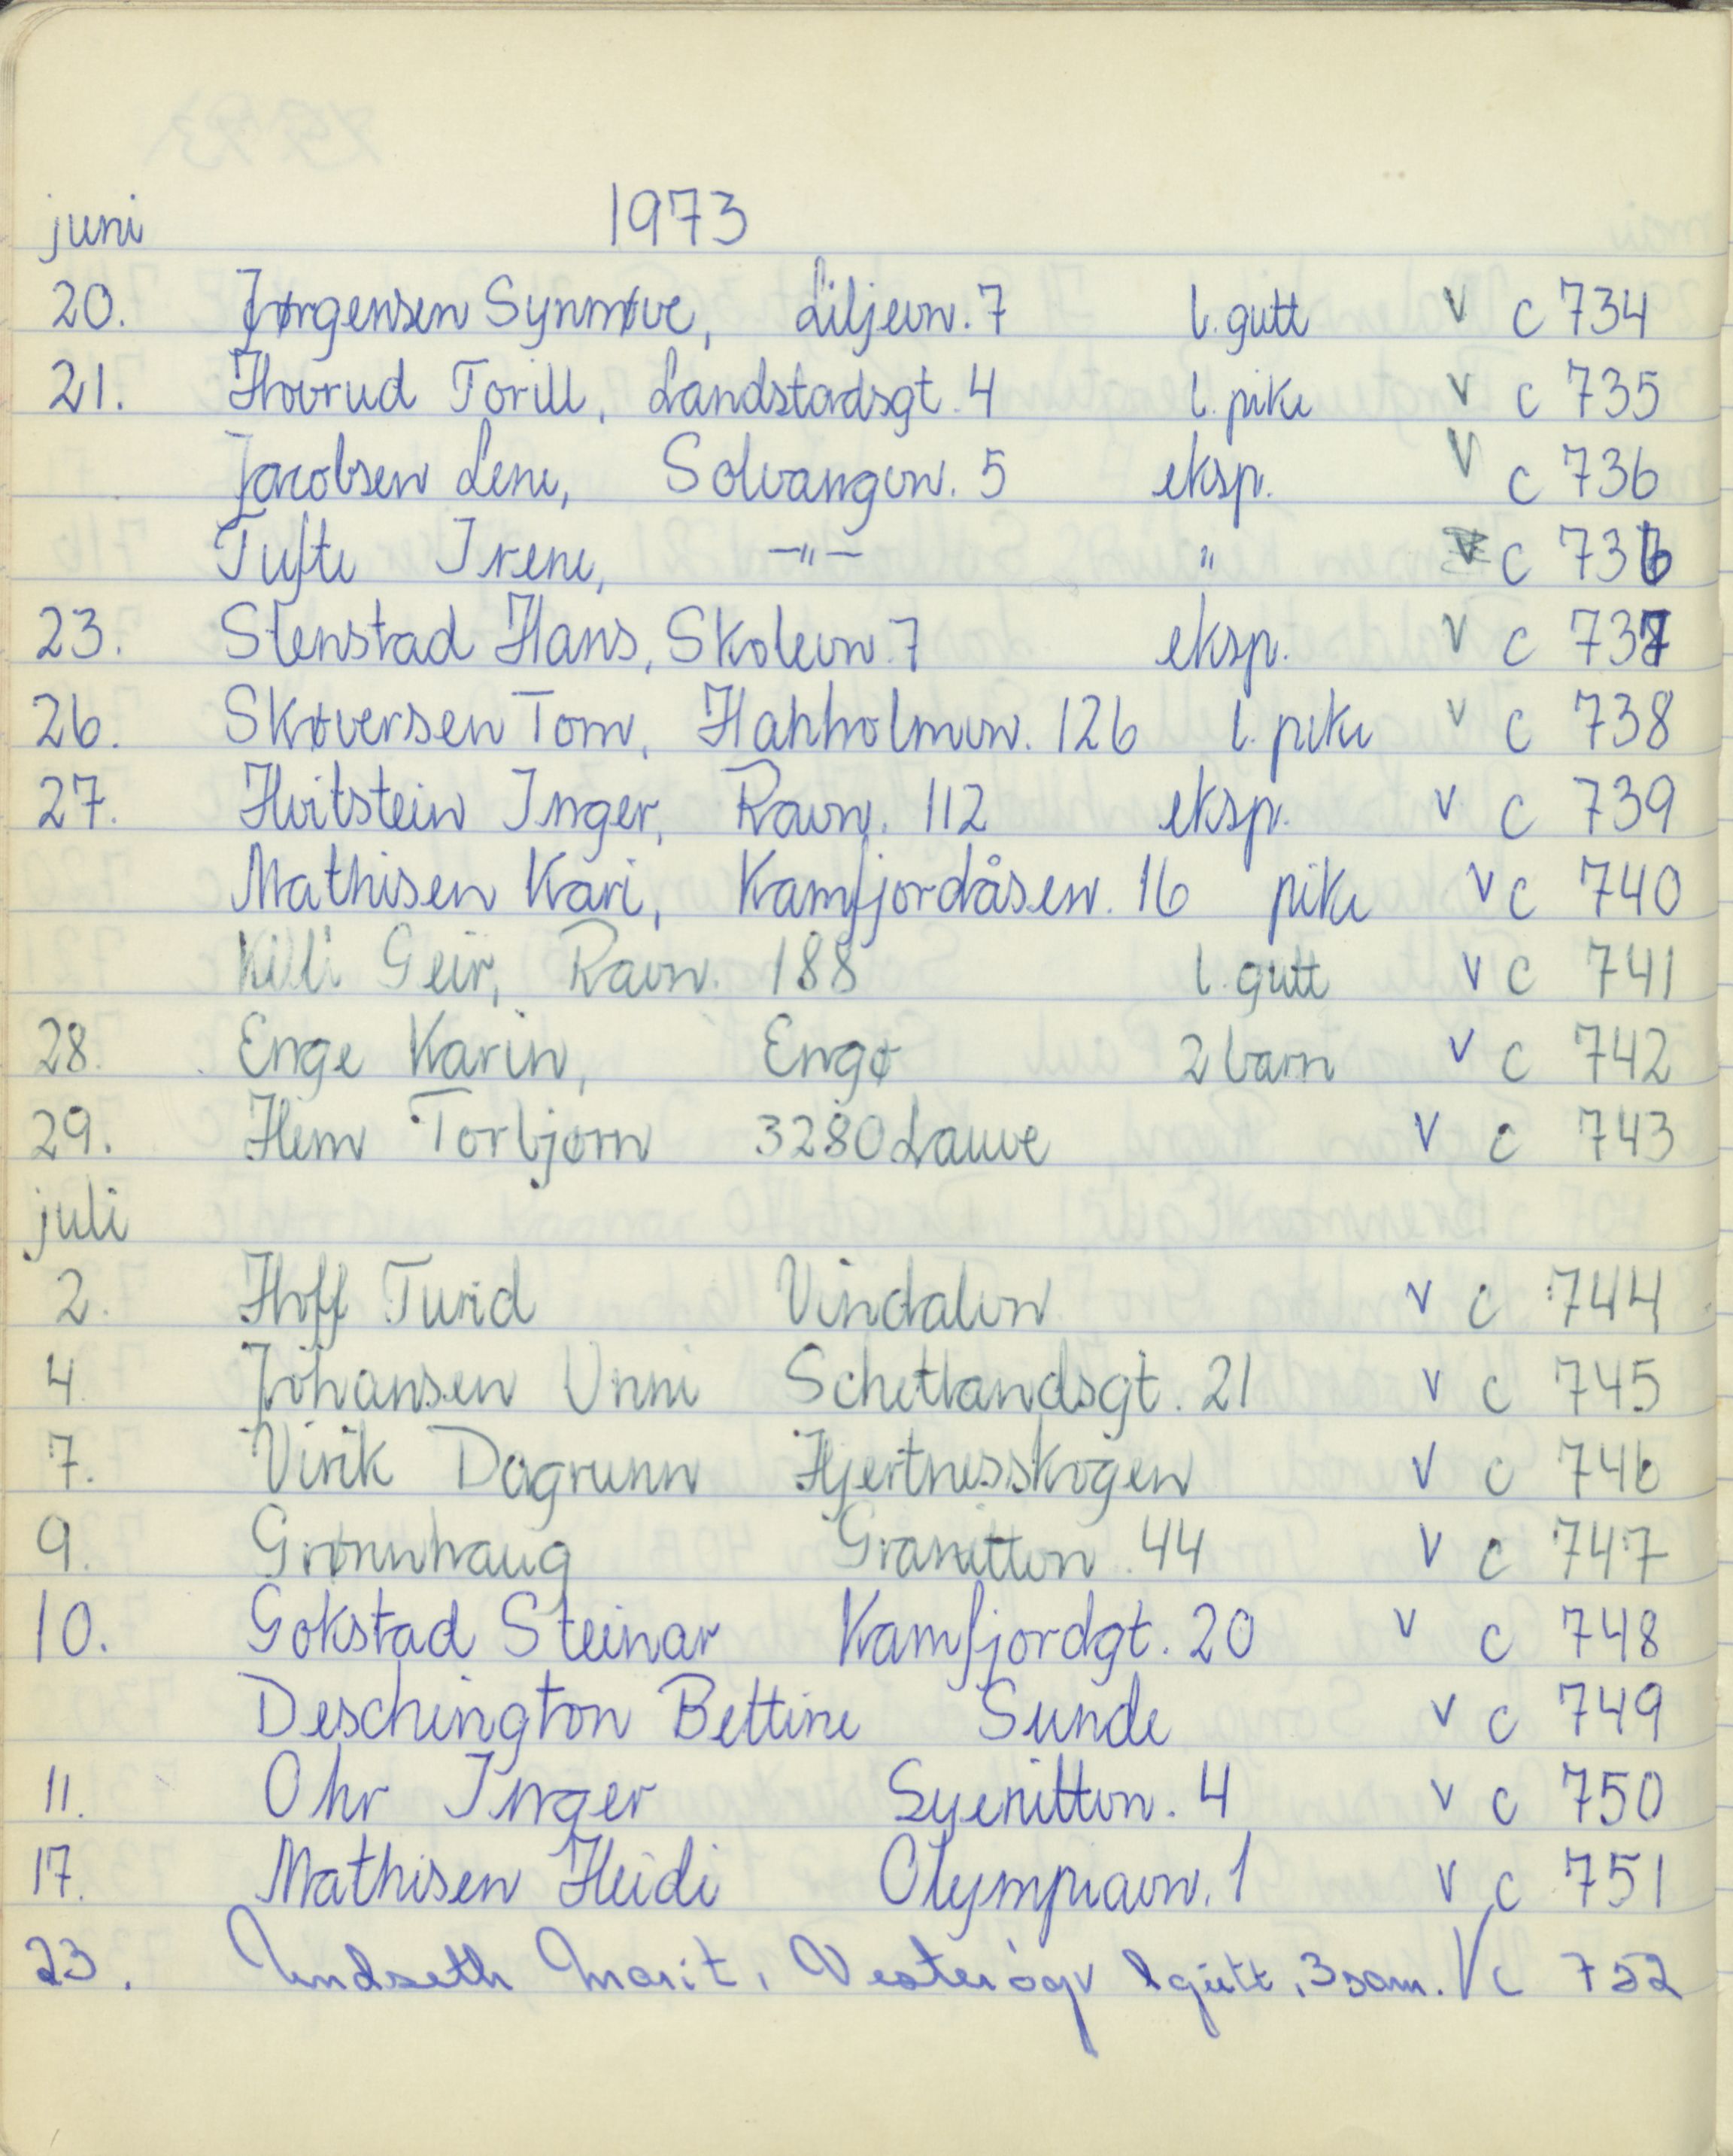 juni 1973
20. Jørgensen Synnøve, Liljevn. 7 l. gutt V C 734
21. Hovrud Torill, Landstadsgt. 4 l. pike V C 735
Jacobsen Lene, Solvangvn. 5 eksp. V C 736
Tufte Irene, —"— " V C 736
23. Stenstad Hans, Skolevn. 7 eksp. V C 737
26. Skøversen Tom, Hahholmvn. 126 l. pike V C 738
27. Hvitstein Inger, Ravn. 112 eksp. V C 739
Mathisen Kari, Kamfjordåsen. 16 pike V C 740
Killi Geir, Ravn. 188 l. gutt V C 741
28. Enge Karin, Engø 2 barn V C 742
29. Hem Torbjørn 3280 Lauve V C 743
juli
2. Hoff Turid Vindalvn V C 744
4. Johansen Unni Schetlandsgt. 21 V C 745
7. Virik Dagrunn Hjertnesskogen V C 746
9. Grønnhaug Granittvn. 44 V C 747
10. Gokstad Steinar Kamfjordgt. 20 V C 748
Deschington Bettine Sunde V C 749
11. Ohr Inger Syenittvn. 4 V C 750
17. Mathisen Heidi Olympiavn. 1 V C 751
23. Undseth Marit, Vesterøyv l gutt, 3 sam. V C 752